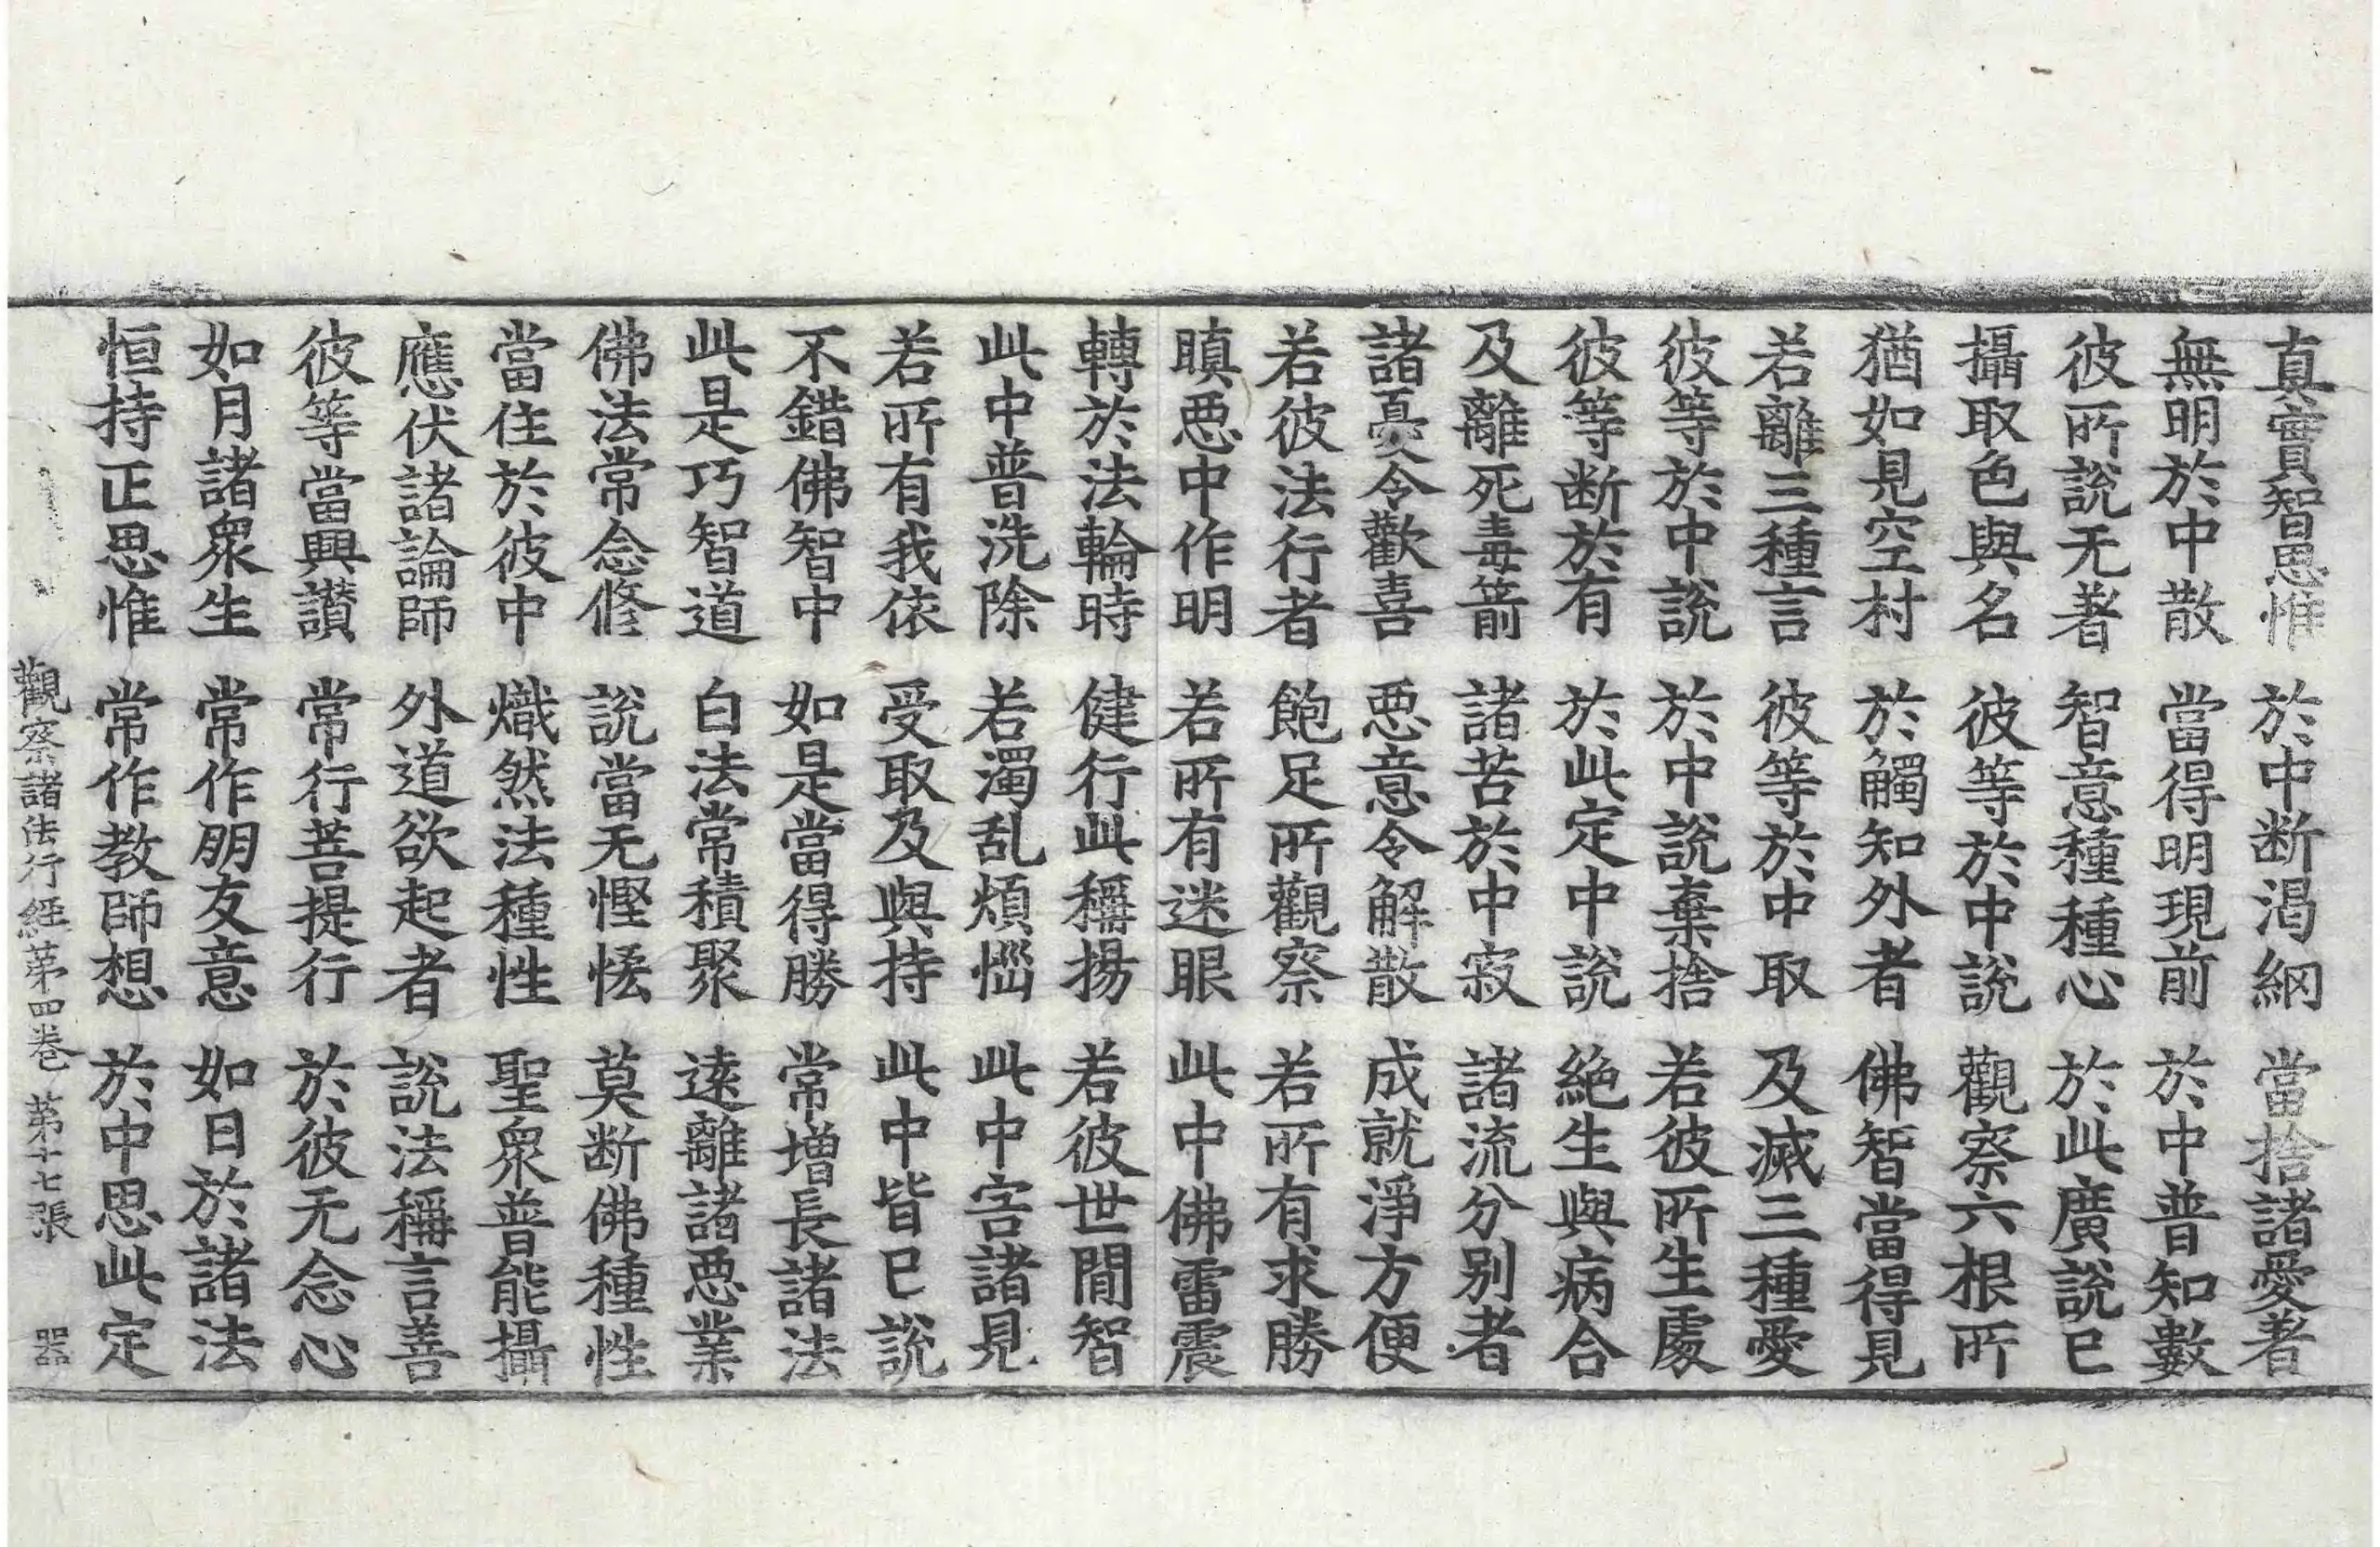 真實智思惟　於中断渇網　當捨諸愛者
無明於中散　當得明現前　於中普知數
彼所說无著　智意種種心　於此廣說已
攝取色與名　彼等於中說　觀察六根所
猶如見空村　於觸知外者　佛智當得見
若離三種言　彼等於中取　及滅三種愛
彼等於中說　於中說棄捨　若彼所生處
彼等断於有　於此定中說　絶生與病合
及離死毒箭　諸苦於中寂　諸流分别者
諸憂令歡喜　悪意令解散　成就淨方便
若彼法行者　飽足所觀察　若所有求勝
瞋悪中作明　若所有迷眼　此中佛雷震
轉於法輪時　健行此稱揚　若彼世間智
此中普洗除　若濁乱煩惱　此中害諸見
若所有我依　受取及與持　此中皆已說
不錯佛智中　如是當得勝　常增長諸法
此是巧智道　白法常積聚　逺離諸悪業
佛法常念修　說當无慳悋　莫断佛種性
當住於彼中　熾然法種性　聖衆普能攝
應伏諸論師　外道欲起者　說法稱言善
彼等當興讃　常行菩提行　於彼无念心
如月諸衆生　常作朋友意　如日於諸法
恒持正思惟　常作教師想　於中思此定
觀察諸法行經第四卷　第十七張　器